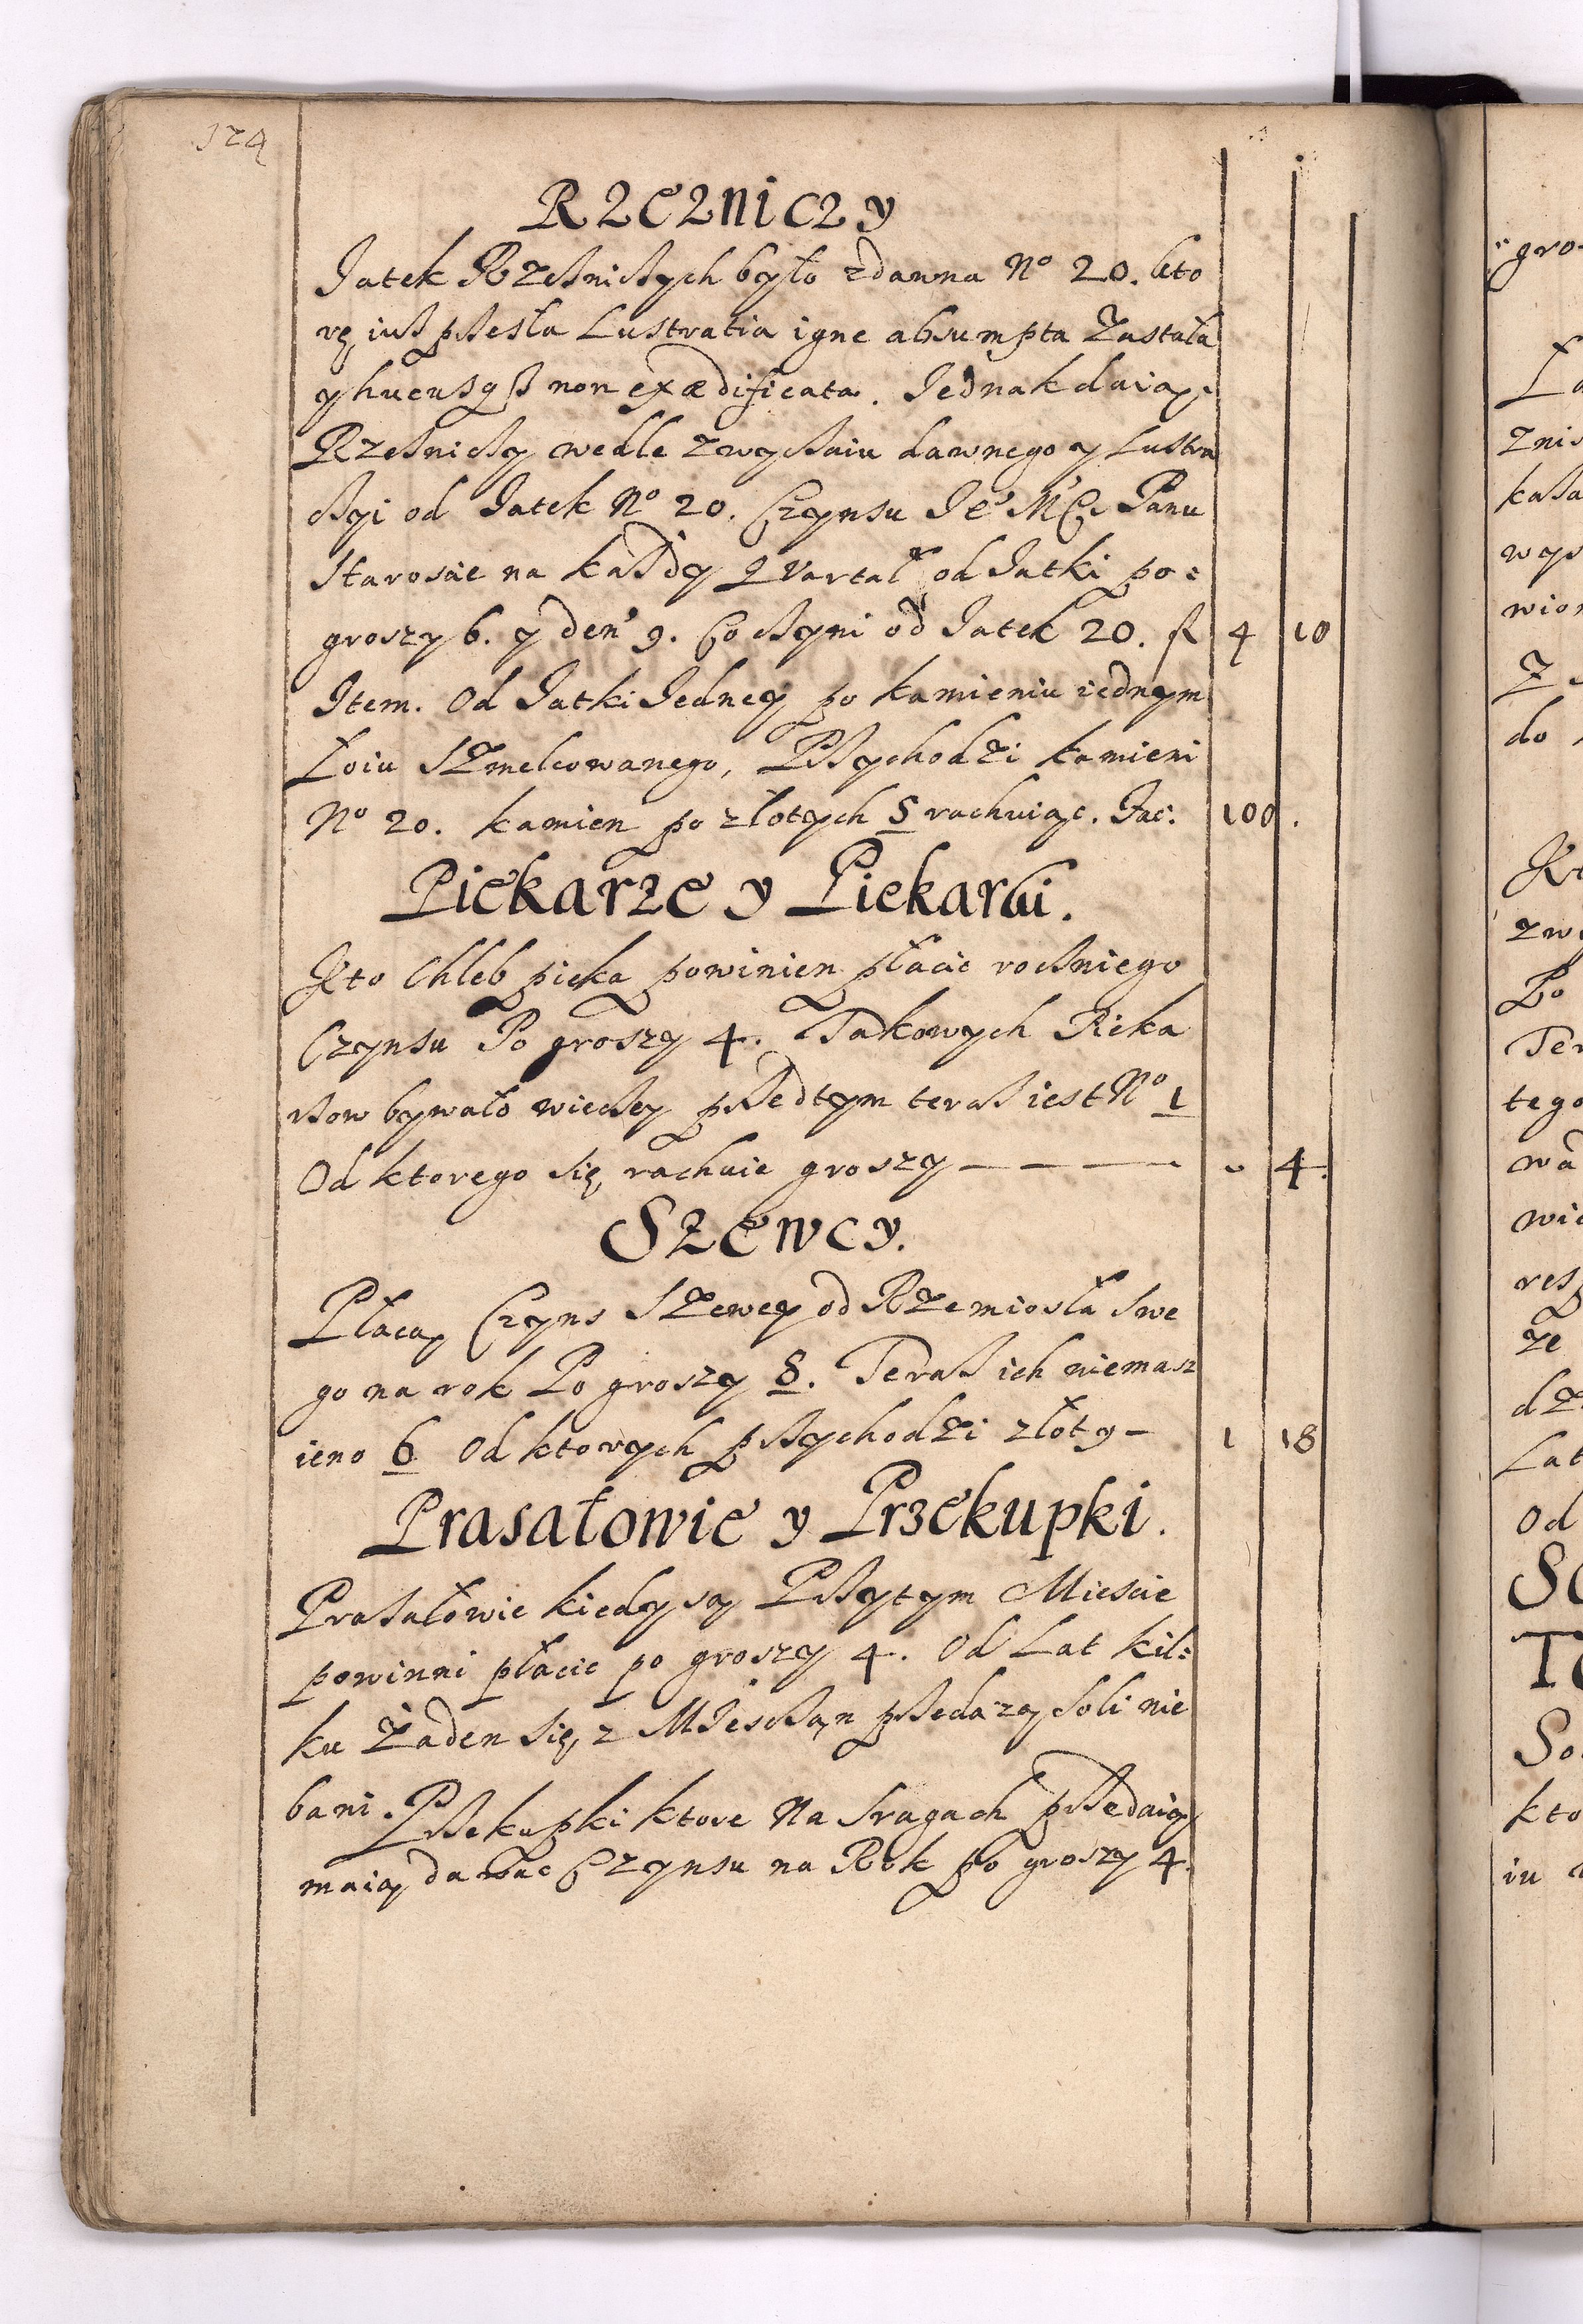 124
Rzezniczy
Jatek Rzeżniczych było zdawna No 20. kto
rę iuż przeszła Lustratia igne absumpta zastała
y hucusq₃ non exædificata. Jednak daią
Rzeżniczy wedle zwyczaiu dawnego y Lustra
czyi od Jatek No 20. Czynsu Je° Mci Panu
Staroscie na każdy Qvartał od Jatki po:
groszy 6. y den 9. Co czyni od Jatek 20. fl 4 10
Item. Od Jatki Jedney po kamieniu iednym
Łoiu Szmelcowanego, Przychodzi kamieni
No 20. kamien po złotych 5 rachuiąc. Jac: 100.
Piekarze y Piekarki.
Kto Chleb pieka powinien płacic roczniėgo
Czynsu Po groszy 4. Takowych Pieka
rzow bywało wieczey przedtym teraz iest No 1
Od ktorego się rachuie groszy — — — — - 4.
Szewcy.
Płacą Czyns Szewcy od Rzemiosła Swe
go na rok Po groszy 8. Teraz ich niemasz
ieno 6 Od ktorych przychodzi złoty – 1 18
Prasałowie y Przekupki.
Prasałowie kiedy są Przy tym Miescie
powinni płacic po groszy 4. Od Lat kil:
ku Żaden się z Miesczan przedazą Soli nie
bawi. Przekupki ktore Na Sragach przedaią
maią dawac Czynsu na Rok po groszy 4.
gro
La
zni
kaza
wys
wion
Z
do
Kt
zwy
Po
Ter
tego
wa
wie
resz
ze
dz
Lat
Od
So
To
So
kto
iu